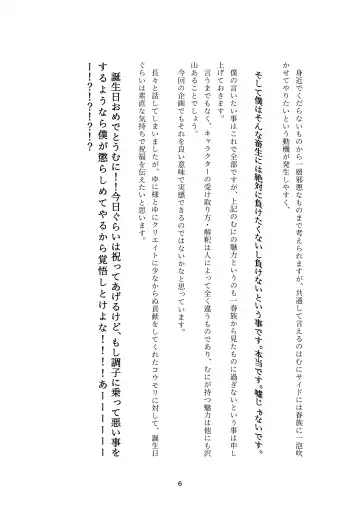 身近でくだらないものから一層邪悪なものまで考えられますが、共通して言えるのはむにサイドには眷族に一泡吹
かせてやりたいという動機が発生しやすく、
そして僕はそんな畜生には絶対に負けたくないし負けないという事です。本当です。嘘じゃないです。
僕の言いたい事はこれで全部ですが、上記のむにの魅力というのも一眷族から見たものに過ぎないという事は申し
上げておきます。
言うまでもなく、キャラクターの受け取り方・解釈は人によって全く違うものであり、むにが持つ魅力は他にも沢
山あることでしょう。
今回の企画でもそれを良い意味で実感できるのではないかなと思っています。
長々と話してしまいましたが、ゆに様とゆにクリエイトに少なからぬ貢献をしてくれたコウモリに対して、誕生日
ぐらいは素直な気持ちで祝福を伝えたいと思います。
誕生日おめでとうむに！！今日ぐらいは祝ってあげるけど、もし調子に乗って悪い事を
するようなら僕が懲らしめてやるから覚悟しとけよな！！！！あーーーーーー
ー！？！？！？！？
6